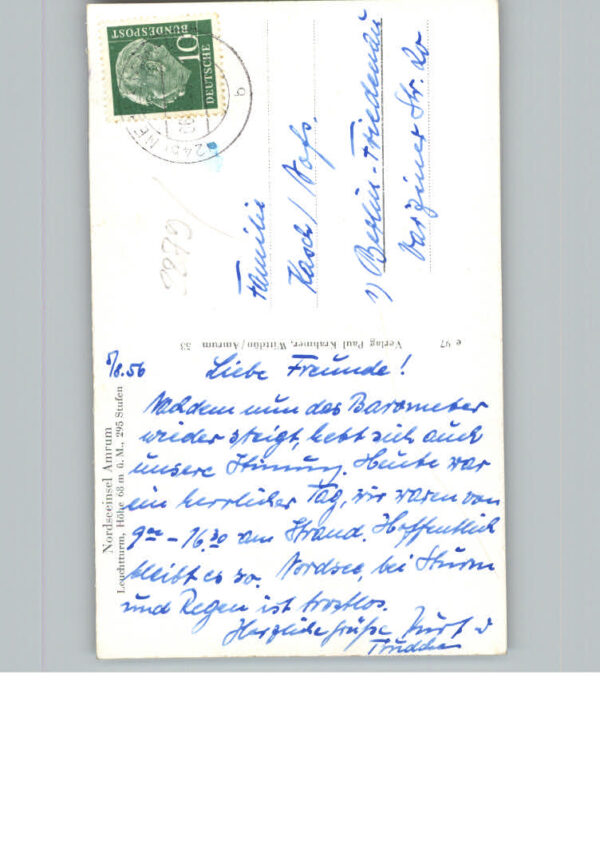 DEUTSCHE
BUNDESPOST
10
Familie
Kasch /
1) Berlin-Friedenau
Varziner Str. 20
e 97 Verlag Paul Krahmer, Wittdün/Amrum 53
Nordseeinsel Amrum
Leuchtturm, Höhe 68 m ü. M., 295 Stufen
/8.56
Liebe Freunde!
Nachdem nun das Barometer
wieder steigt, hebt sich auch
unsere Stimmung. Heute war
ein herrlicher Tag, wir waren von
9 00 - 16.30 am Strand. Hoffentlich
bleibt es so. Nordsee, bei Sturm
und Regen ist trostlos.
Herzliche Grüße Kurt